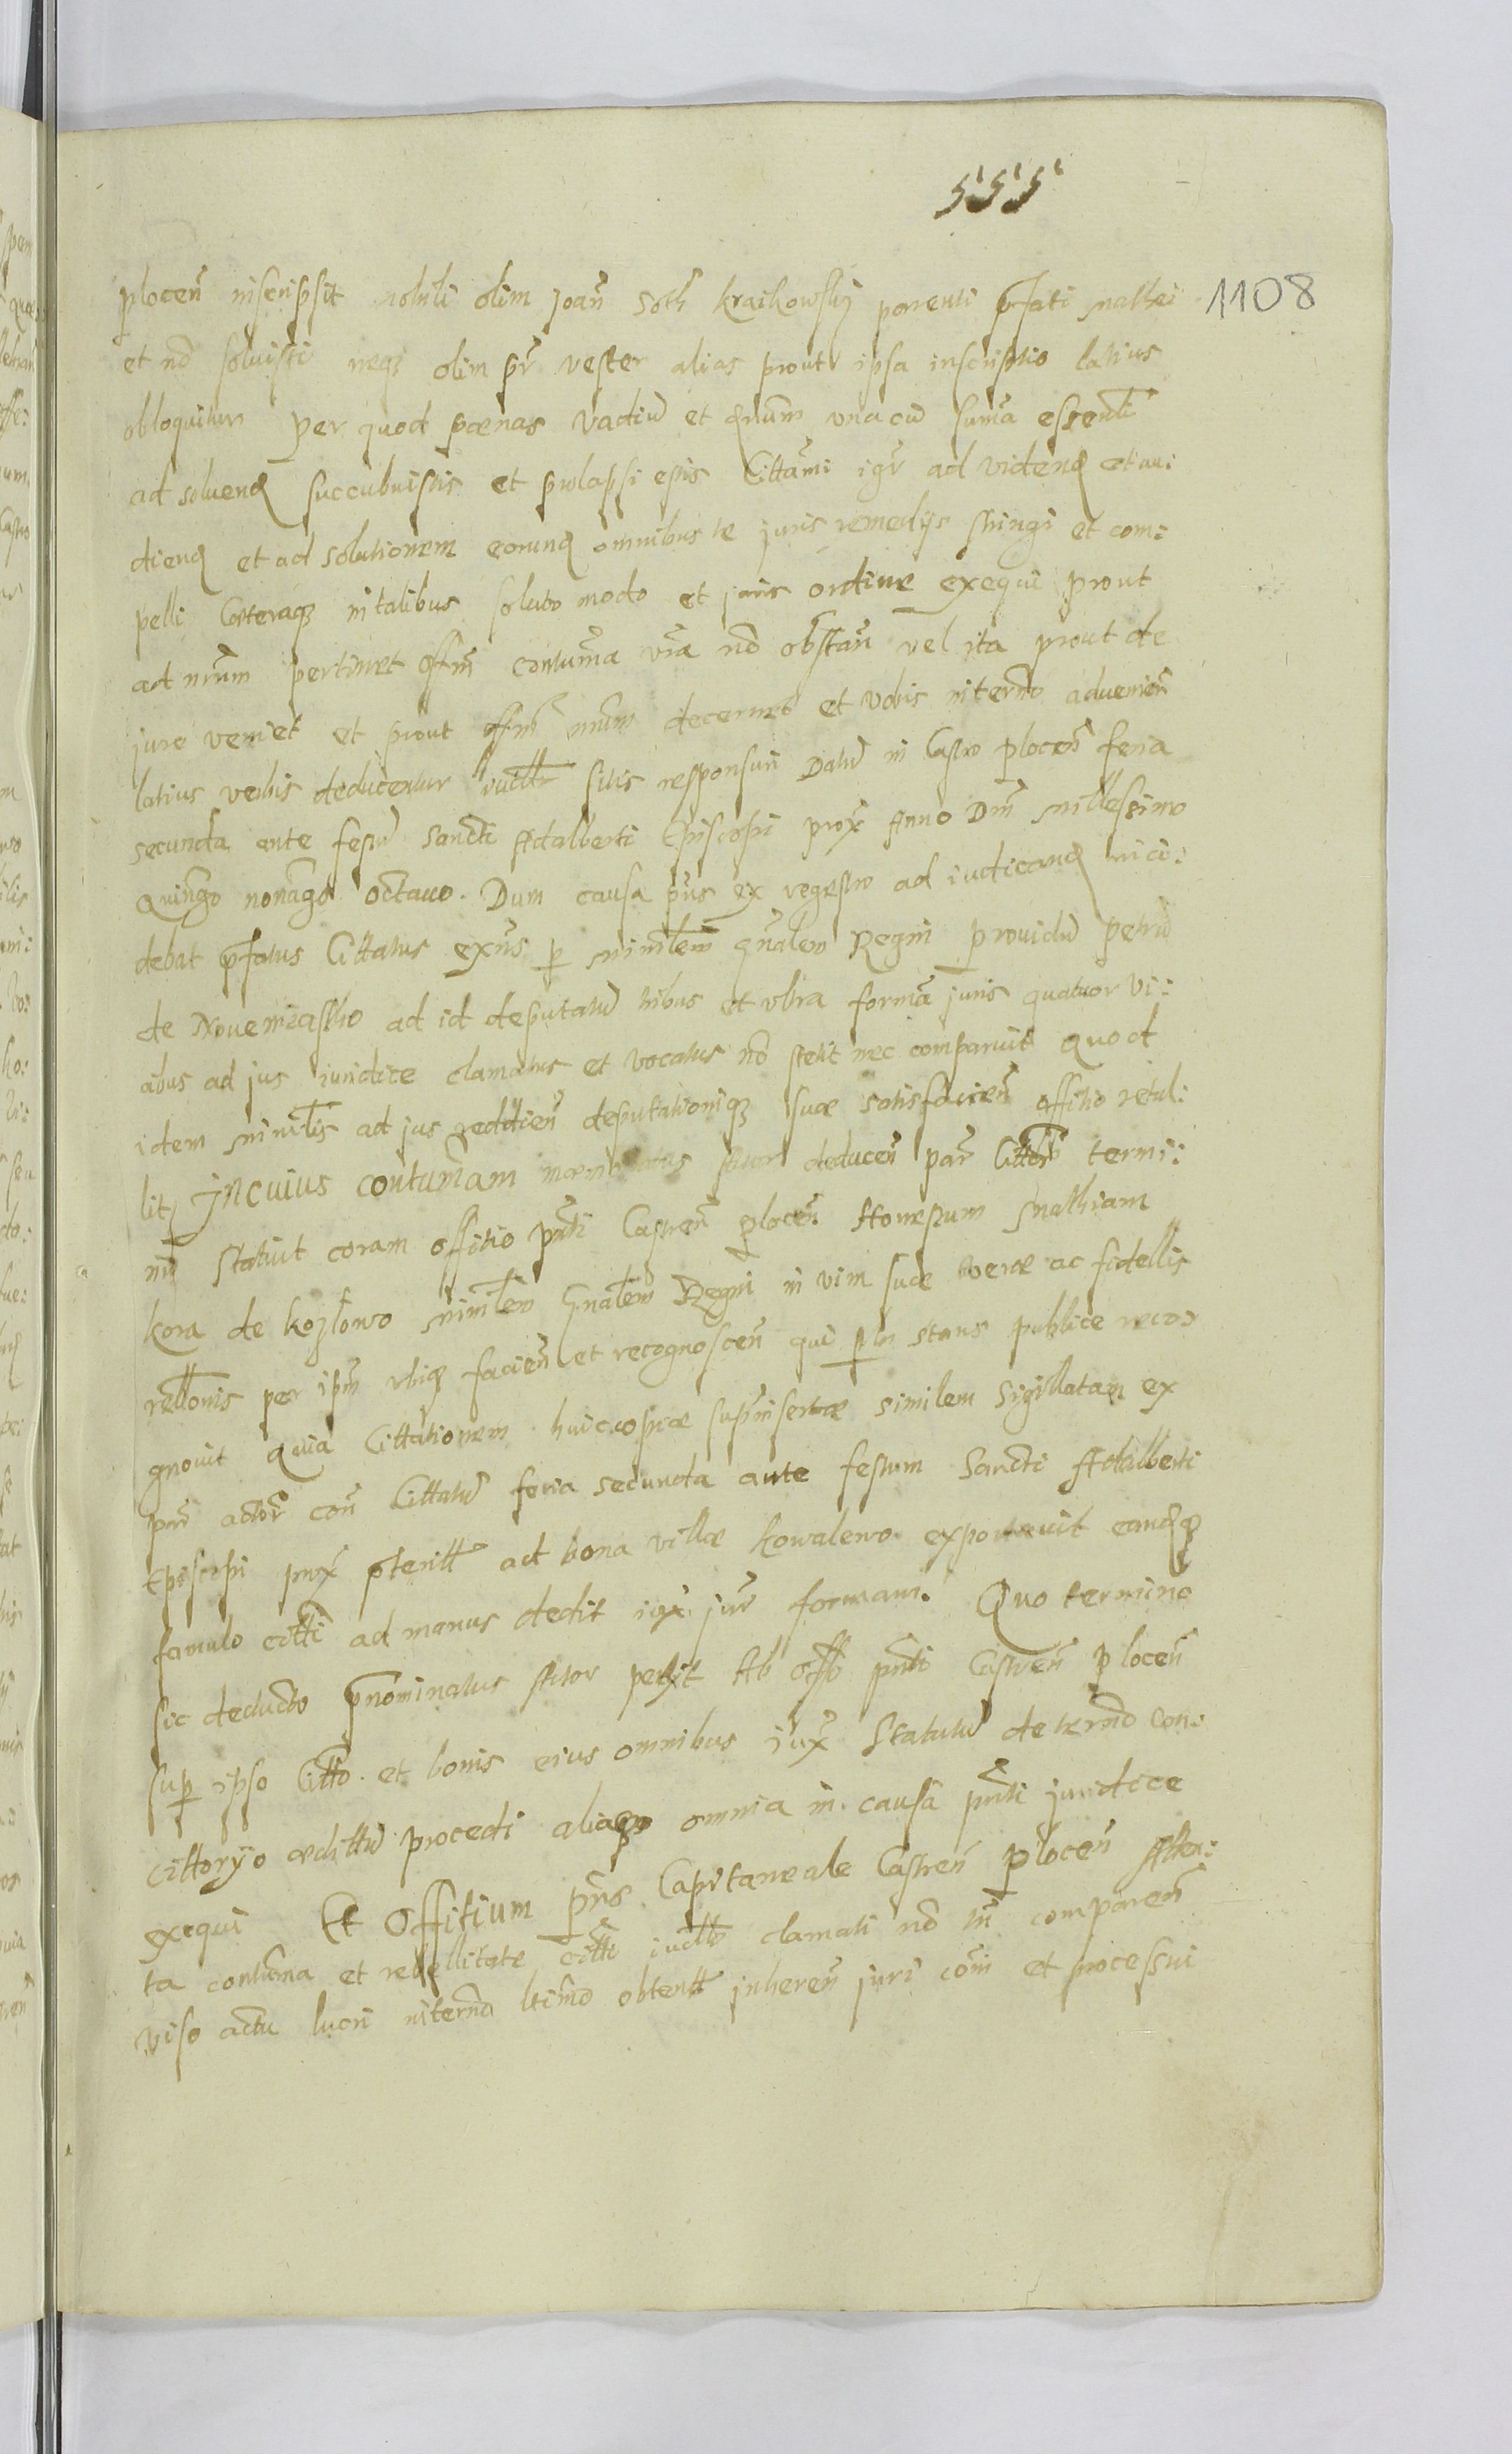 555
1108
plocen̄ inscripsit nobili olim Joan̄ Soth̄ kraikowskij parenti p̄fati mathei
et nō soluisti neq3 olim pr̄ vester alias prout ipsa inscriptio latius
obloquitur Per quod pœnas vadiū et dn̄um unacū sum̄a essentli
ad soluend succubuistis et prolapsi estis Cittam̄i igr̄ ad videnđ et au:
dienđ et ad solutionem eorunđ omnibus te juris remedijs stringi et com:
pelli Cœteraq3 in talibus soluto modo et juris ordine exequi prout
ad nr̄um pertinet offm̄ contum̄a vr̄a nō obstan̄ vel ita prout de
jure veniet et prout offm̄ nr̄um decernet et vobis in termō aduenien̄
latius verbis deducentur iudllr sitis responsuri Datū in Castro plocen̄ feria
secunda ante festū Sancti Adalberti Episcopi prox̄ Anno Dnī millessimo
Quingō nonagō octauo. Dum causa pn̄s ex regestro ad iudicanđ inci:
debat p̄fatus Cittatus exn̄s p minr̄lem gn̄alem Regni prouidū petrū
de Nouemiastho ad id deputatū tribus et vltra formā juris quatuor vi:
cibus ad jus iuridice clamatus et vocatus nō stetit nec comparuit Quod
idem ministrl̄is ad jus reddien̄ deputationiq3 suæ satisfacien̄ offitio retul:
lit, In cuius contumaciam Actor deducen̄ par̄ Cittōr̄ termi:
nū Statuit coram offitio pn̄ti Castren̄ plocen̄ Honestum Mathiam
kora de kozłowo minrl̄em Gn̄alem Regni in vim suæ veræ ac fidellis
rellōnis per ipm̄ vbiq3 facien̄ et recognoscen̄ qui p̄ln̄ stans publice reco:
gnouit Quia Cittationem huic copiæ supra insertæ similem sigillatam ex
par̄ actōr̄ con̄ Cittatū feria secunda ante festum Sancti Adalberti
Episcopi prox̄ p̄terill ad bona villæ kowalewo exportauit eandq3
famulo cittī ad manus dedit iux̄ jur̄ formam. Quo termino
sic deducto p̄nominatus Actor petyt Ab offō pn̄ti Castren̄ plocen̄
sup ipso Cittō et bonis eius omnibus iux̄ Statutū de termō con:
cittoryo ædittū procedi aliaq3 omnia in causa pn̄ti juridice
exequi Et Offitium pn̄s Capitaneale Castren̄ plocen̄ Atten:
ta contum̄a et rebellitate cittī iudllr clamati nō tn̄ comparen̄
Viso actu lucri in termō ltimō obtentt inheren̄ juri com̄i et processui